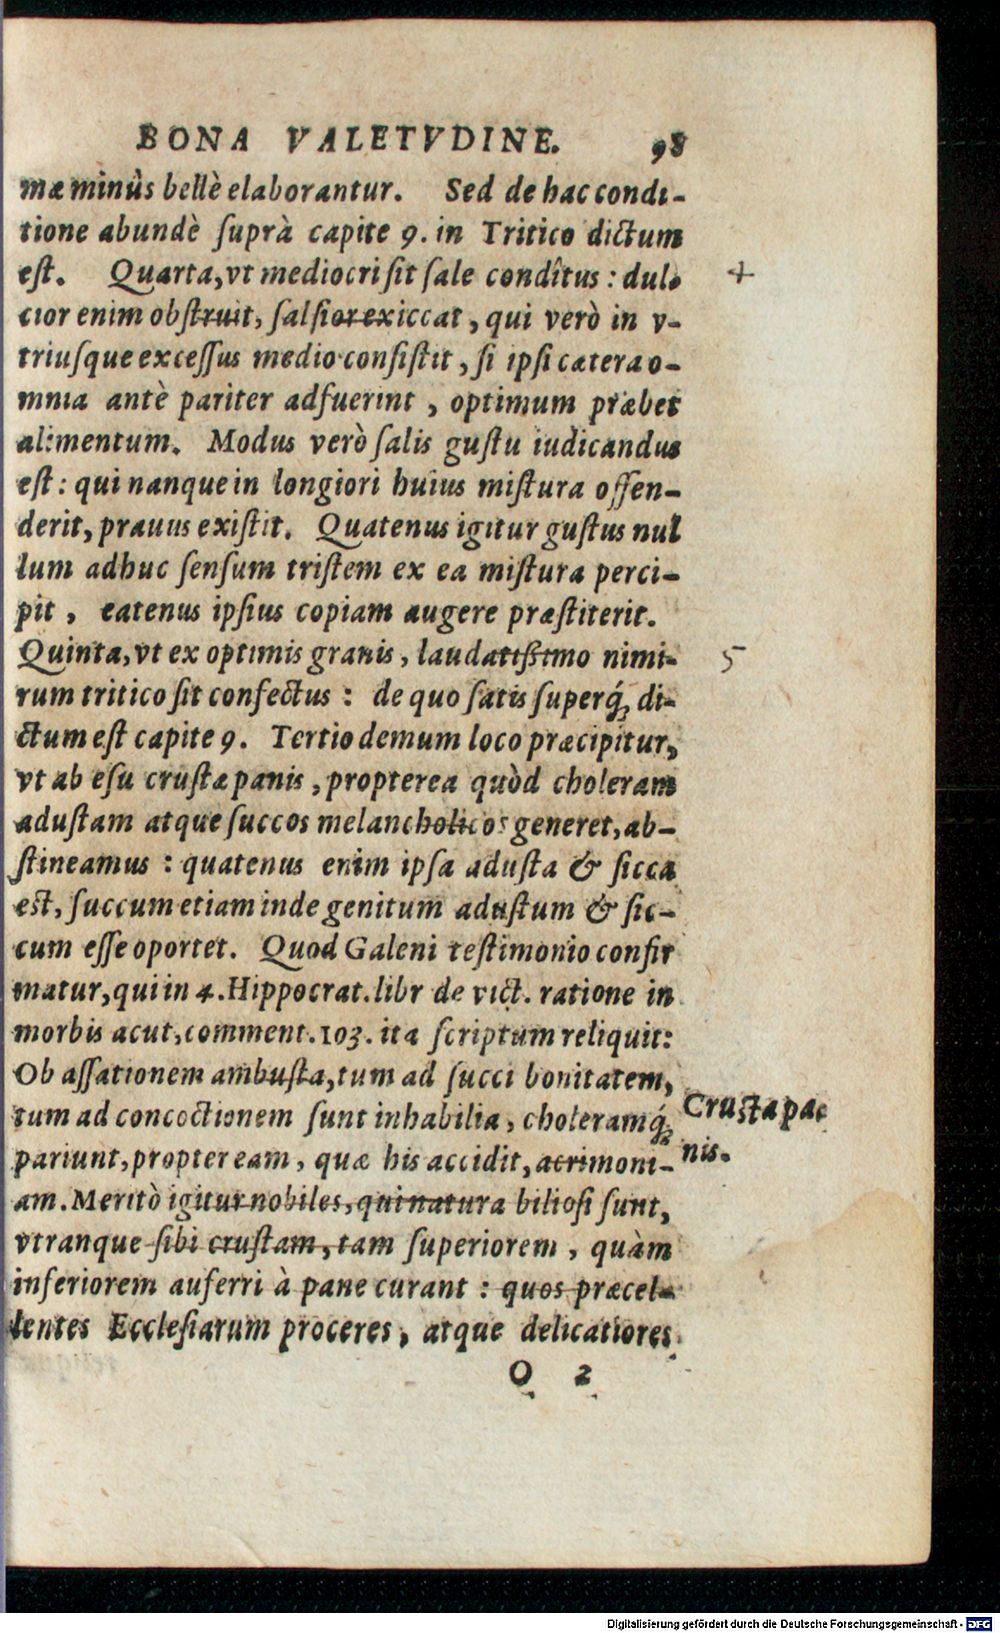 BONA VALETVDINE. 98
mæ minùs bellè elaborantur. Sed de hac condi-
tione abundè ſuprà capite 9. in Tritico dictum
eſt. Quarta, vt mediocri ſit ſale condîtus: dul- 4
cior enim obſtruit, ſalſior exiccat, qui verò in v-
triuſque exceſſus medio conſiſtit, ſi ipſi cætera o-
mnia antè pariter adfuerint, optimum præbet
alimentum. Modus verò ſalis guſtu iudicandus
eſt: qui nanque in longiori huius miſtura offen-
derit, prauus exiſtit. Quatenus igitur guſtus nul
lum adhuc ſenſum triſtem ex ea miſtura perci-
pit, eatenus ipſius copiam augere præſtiterit.
Quinta, vt ex optimis granis, laudatiſsimo nimi- 5
rum tritico ſit confectus: de quo ſatis ſuperq́; di-
ctum eſt capite 9. Tertio demum loco præcipitur,
vt ab eſu cruſtæ panis, propterea quòd choleram
aduſtam atque ſuccos melancholicos generet, ab-
ſtineamus: quatenus enim ipſa aduſta & ſicca
eſt, ſuccum etiam inde genitum aduſtum & ſic-
cum eſſe oportet. Quod Galeni teſtimonio confir
matur, qui in 4. Hippocrat. libr de vict. ratione in
morbis acut, comment. 103. ita ſcriptum reliquit:
Ob aſſationem ambuſta, tum ad ſucci bonitatem,
tum ad concoctionem ſunt inhabilia, choleramq́;
Cruſta pa-
nis.
pariunt, propter eam, quæ his accidit, acrimoni-
am. Meritò igitur nobiles, qui natura bilioſi ſunt,
vtranque ſibi cruſtam, tam ſuperiorem, quàm
inferiorem auferri à pane curant: quos præcel-
lentes Eccleſiarum proceres, atque delicatiores
O 2
Digitalisierung gefördert durch die Deutsche Forschungsgemeinschaft - DFG